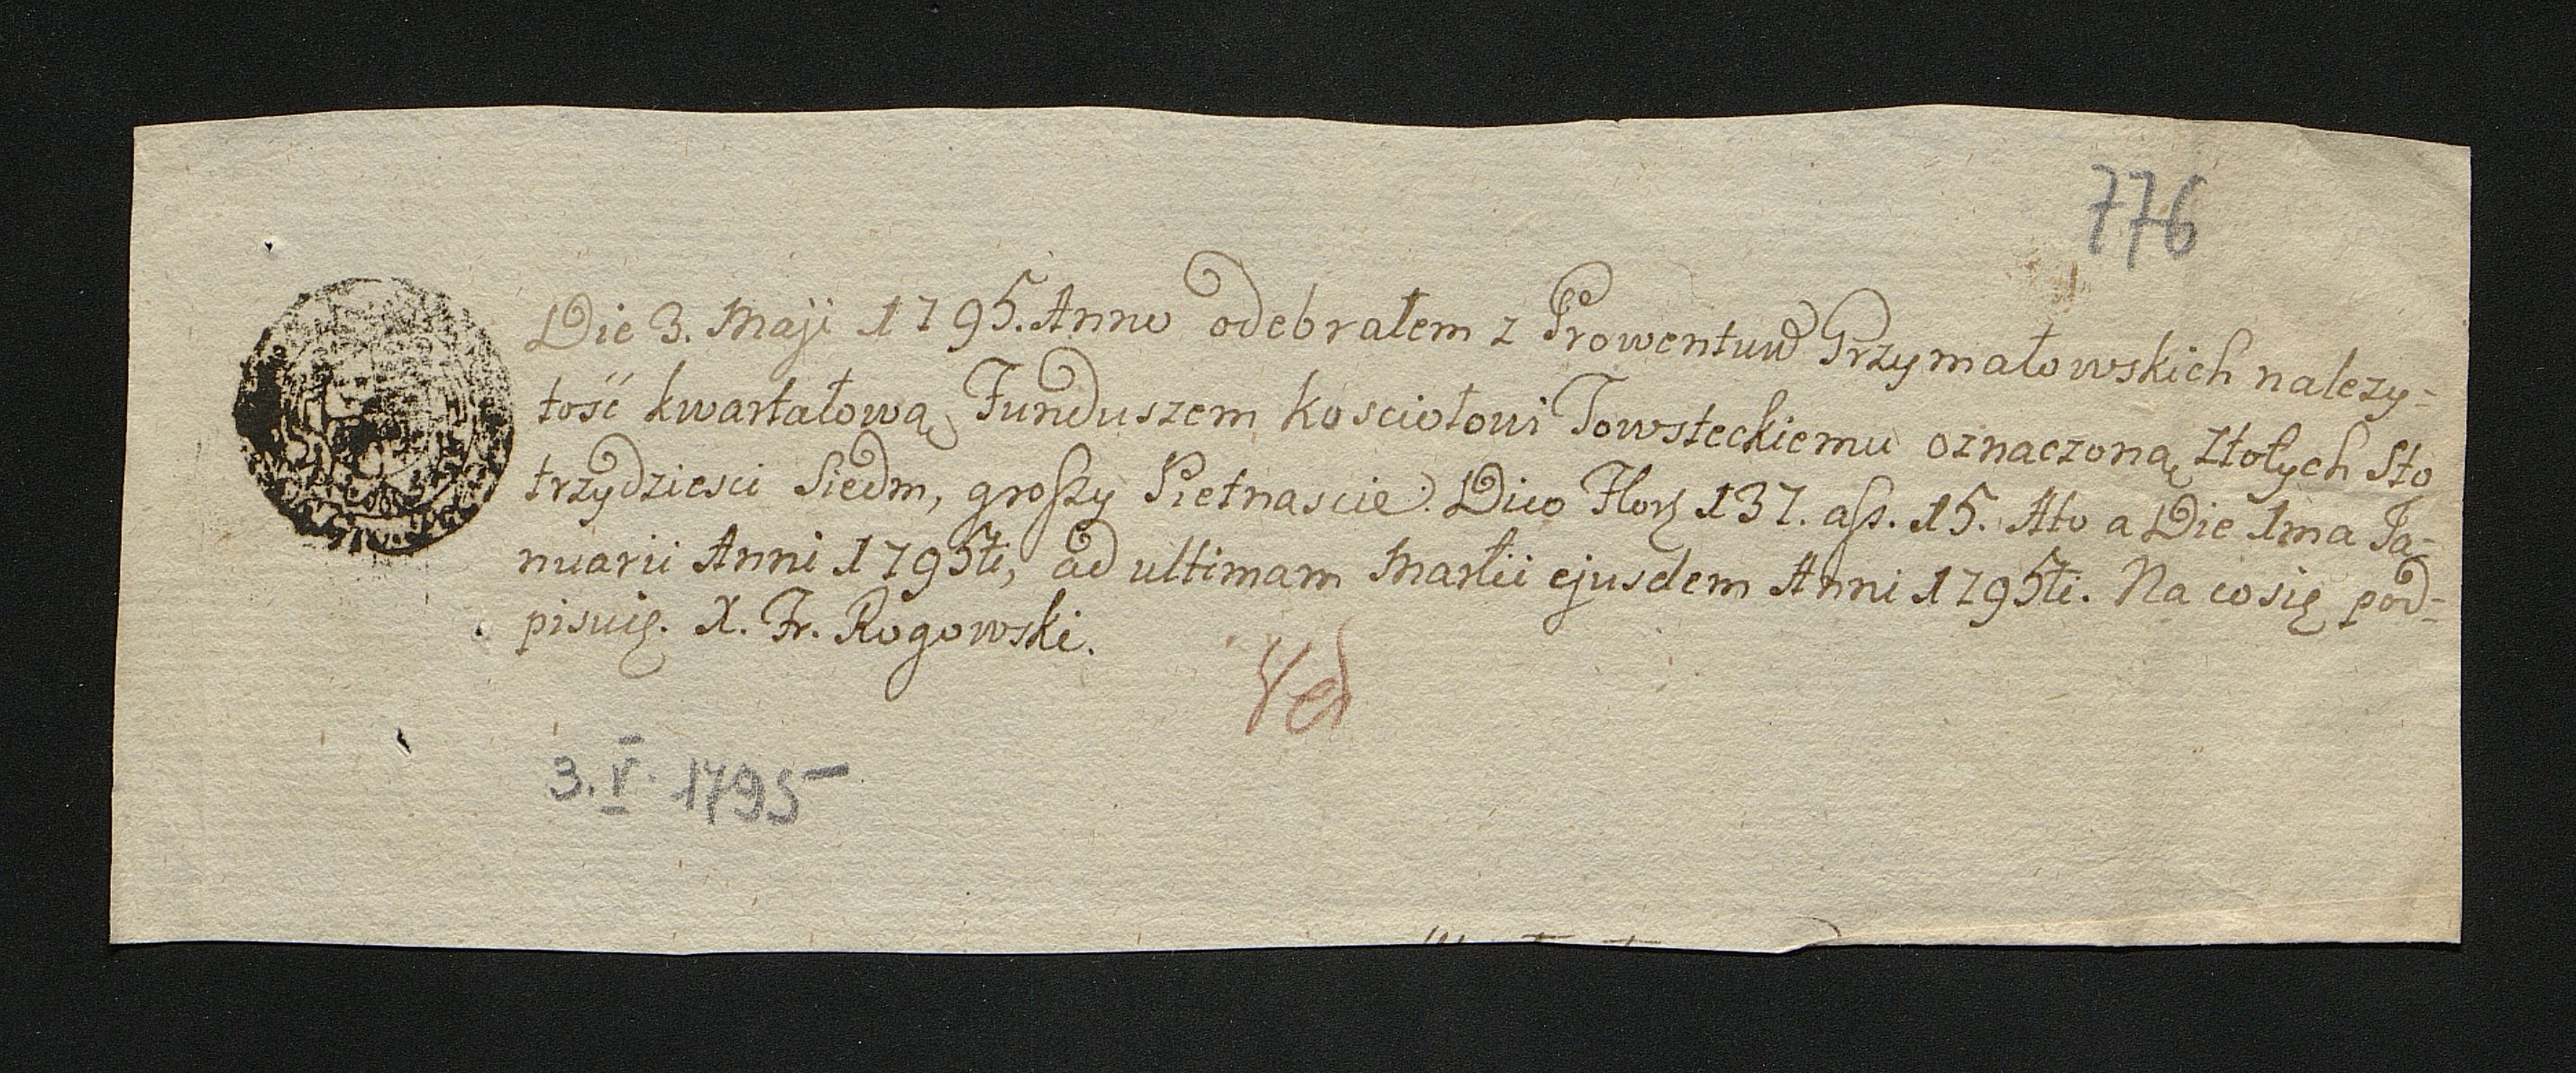 776
Die 3. Maji 1795. Anno odebrałem z Prowentuw Grzymałowskich nalezy=
tość kwartałową Funduszem kosciołowi Towsteckiemu oznaczoną Złotych Sto
trzydziesci Siedm, groszy Pietnascie. Dico Flor 137. gss. 15. Ato a Die 1ma Ja=
nuarii Anni 1795ti, ad ultimam Martii ejusdem Anni 1795ti. Na co się pod=
pisuię. X. Fr. Rogowski.
3. V. 1795